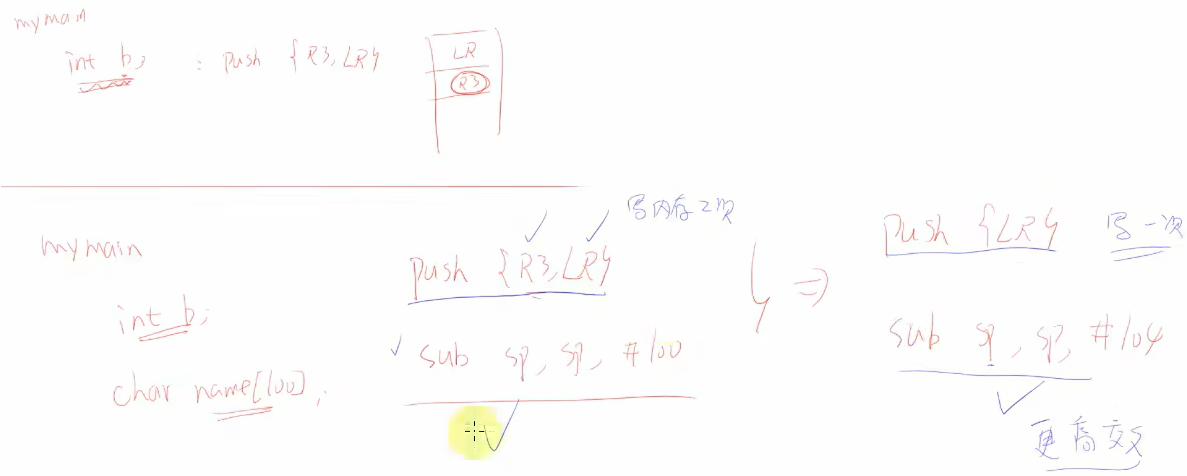 mymain
int b; : push {R3, LR}
LR
R3
mymain
int b;
char name[100];
push {R3, LR}
写内存2次
sub sp, sp, #100
⇒
push {LR}
写一次
sub sp, sp, #104
更高效